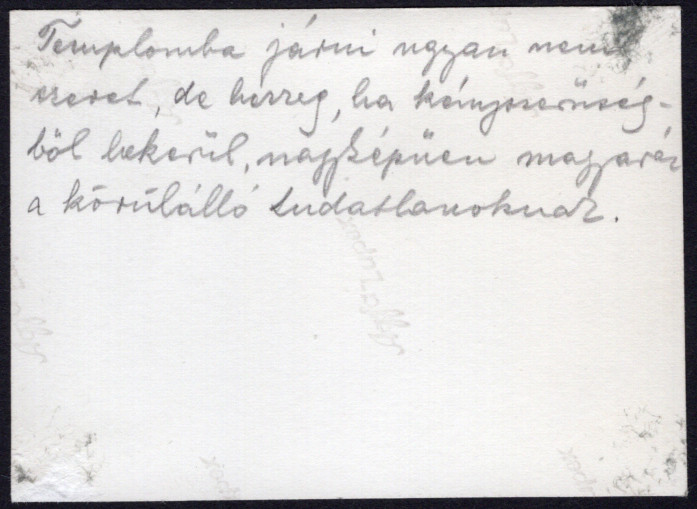 Templomba járni ugyan nem
szeret, de herreg, ha kényszerűség-
ből bekerül, nagyképűen magyaráz
a körülálló tudatlanoknak.
Agfa Lupex